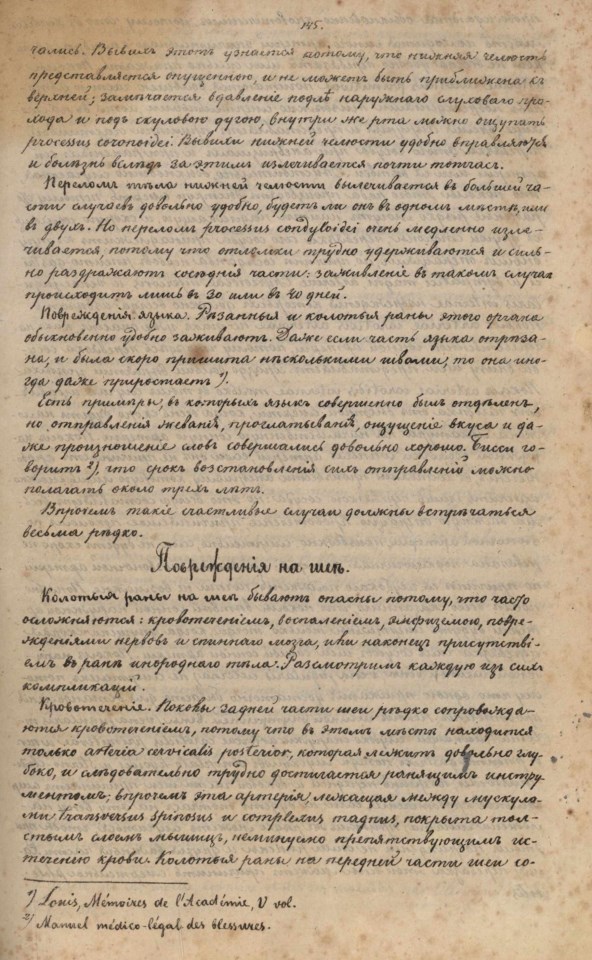 145.
чались. Вывихъ этотъ узнается потому, что нижняя челюсть
представляется опущенною, и не можетъ быть приближена къ
верхней; замѣчается вдавленіе подлѣ наружнаго слуховаго про-
хода и подъ скуловою дугою, внутри же рта можно ощупать
processus coronoidei. Вывихи нижней челюсти удобно вправляются
и болѣзнь вслѣдъ за этимъ излечивается почти тотчасъ.
Переломъ тѣла нижней челюсти вылечивается въ большей ча-
сти случаевъ довольно удобно, будетъ ли онъ въ одномъ мѣстѣ, или
въ двухъ. Но переломъ processus condyloidei очень медленно изле-
чивается, потому что отломки трудно удерживаются и силь-
но раздражаютъ сосѣднія части: заживленіе въ такомъ случаѣ
происходитъ лишь въ 30 или въ 40 дней.
Поврежденія языка. Рѣзанныя и колотыя раны этого органа
обыкновенно удобно заживаютъ. Даже если часть языка отрѣза-
на, и была скоро пришита нѣсколькими швами, то она ино-
гда даже приростаетъ ¹).
Есть примѣры, въ которыхъ языкъ совершенно былъ отдѣленъ,
но отправленія жеванія, проглатыванія, ощущеніе вкуса и да-
же произношеніе словъ совершались довольно хорошо. Бисси го-
воритъ ²), что срокъ возстановленія сихъ отправленій можно
полагать около трехъ лѣтъ.
Впрочемъ такіе счастливые случаи должны встрѣчаться
весьма рѣдко.
Поврежденія на шеѣ.
Колотыя раны на шеѣ бываютъ опасны потому, что часто
осложняются: кровотеченіемъ, воспаленіемъ, эмфиземою, повре-
жденіями нервовъ и спиннаго мозга, или наконецъ присутстві-
емъ въ ранѣ инороднаго тѣла. Разсмотримъ каждую изъ сихъ
компликацій.
Кровотеченіе. Поковы задней части шеи рѣдко сопровожда-
ются кровотеченіемъ, потому что въ этомъ мѣстѣ находится
только arteria cervicalis posterior, которая лежитъ довольно глу-
боко, и слѣдовательно трудно достигается ранящимъ инстру-
ментомъ; впрочемъ эта артерія, лежащая между мускула-
ми transversus spinosus и complexus magnus, покрыта тол-
стымъ слоемъ мышицъ, неминуемо препятствующимъ ис-
теченію крови. Колотыя раны на передней части шеи со-
¹) Louis, Mémoires de l'Académie, V vol.
²) Manuel médico-légal des blessures.